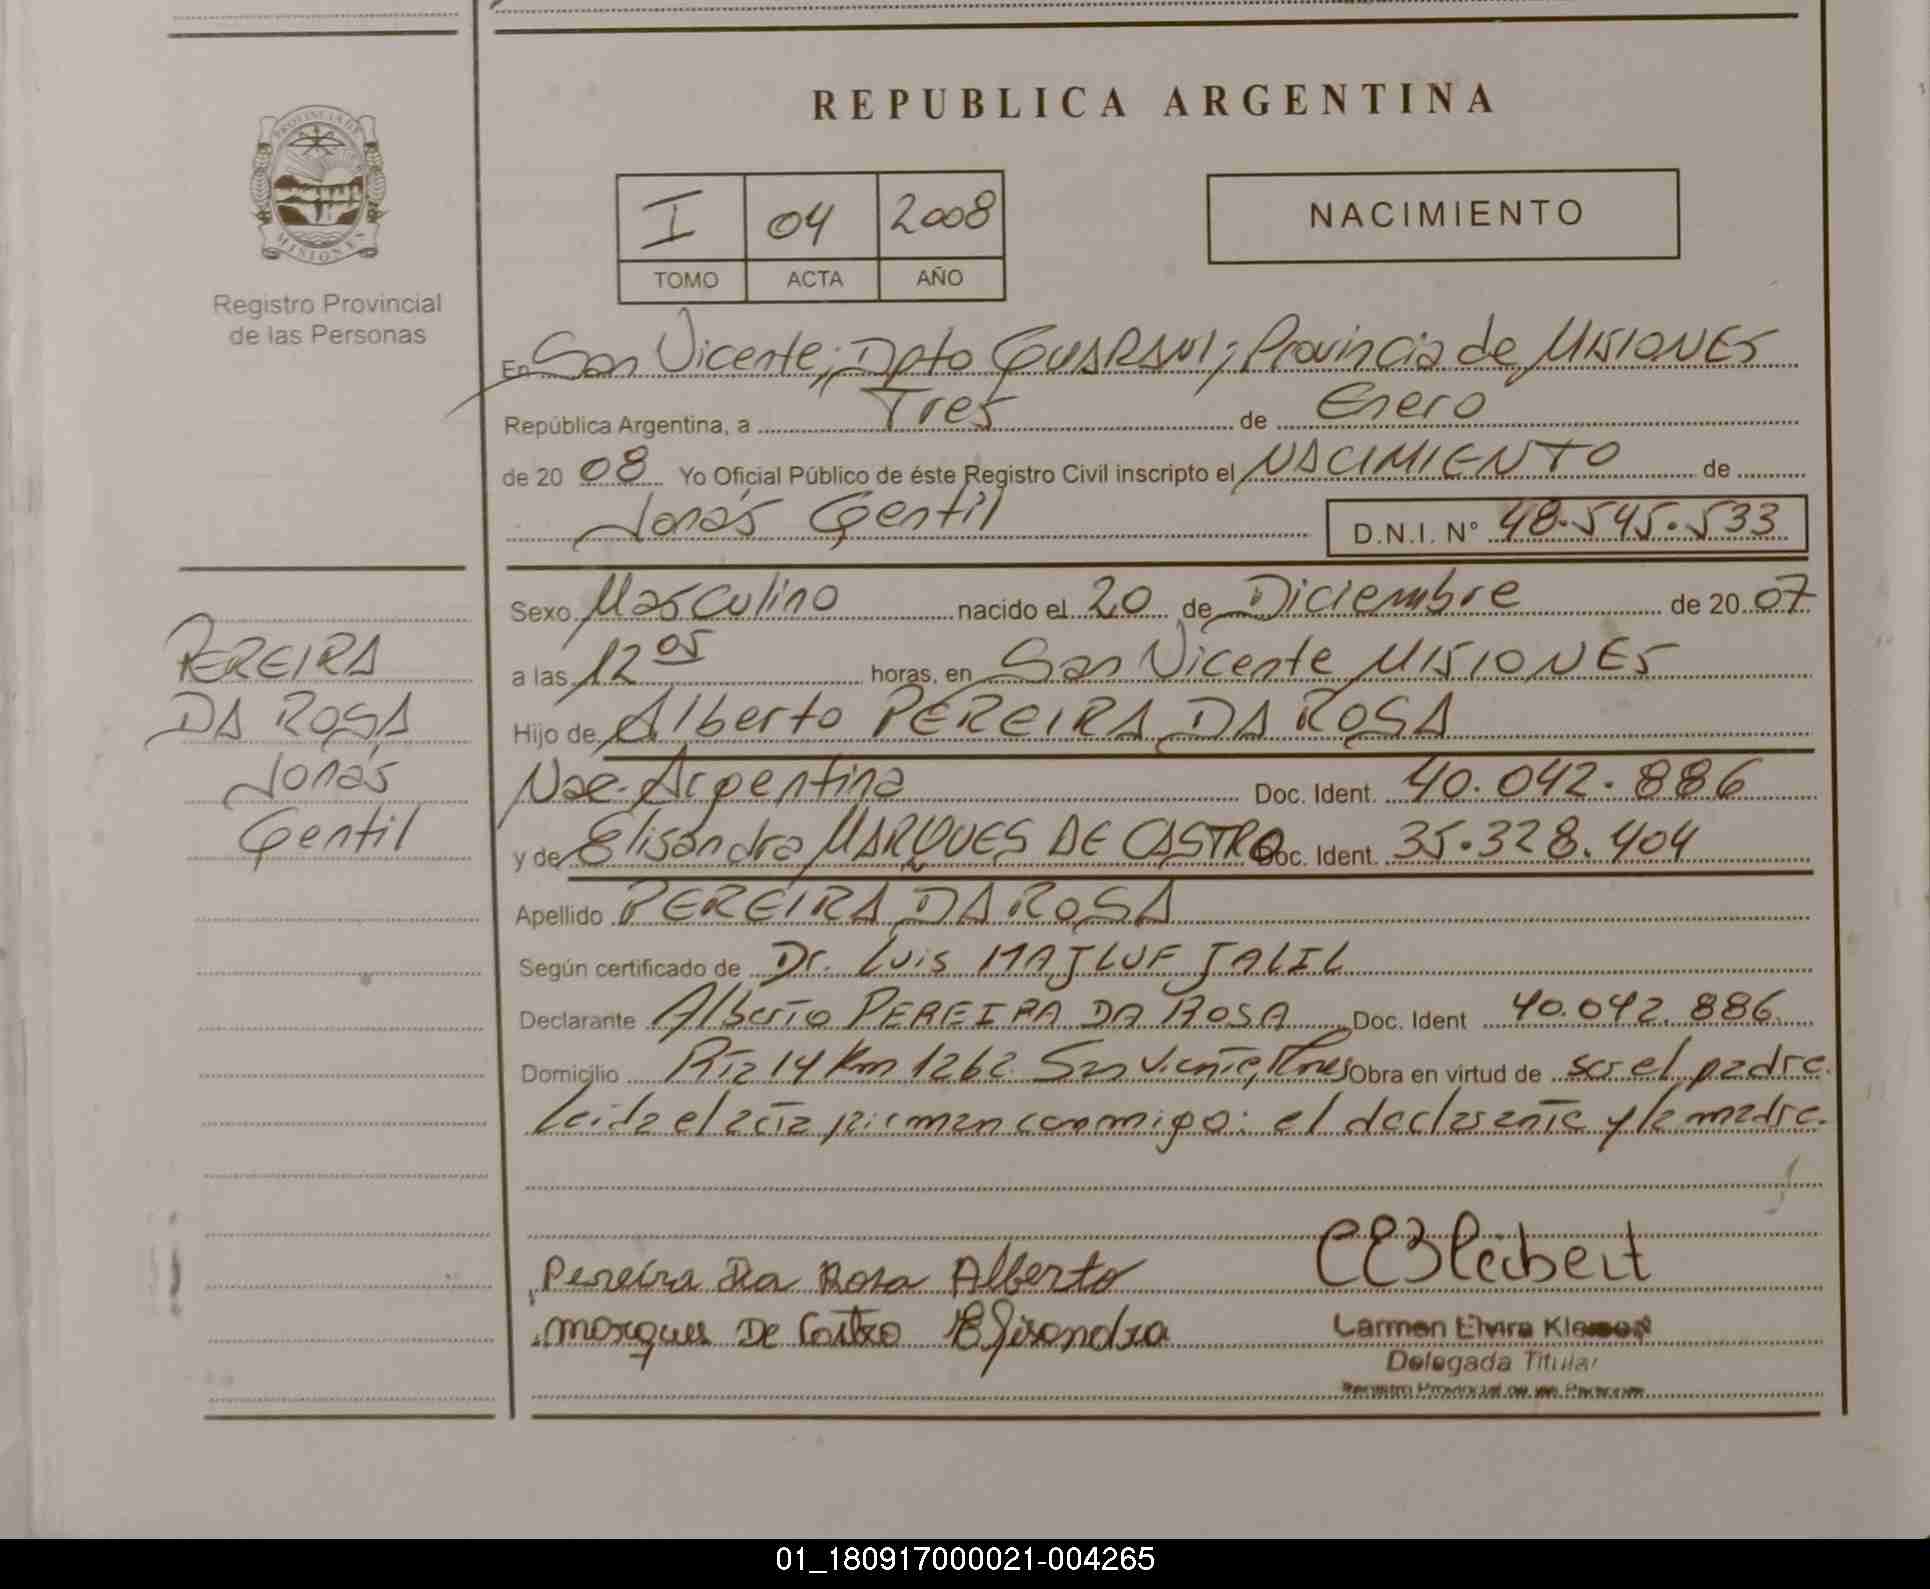 PROVINCIA DE
MISIONES
Registro Provincial
de las Personas
REPUBLICA ARGENTINA
I 04 2008
TOMO ACTA AÑO
NACIMIENTO
En San Vicente; Dpto GUARANI; Provincia de MISIONES
República Argentina, a Tres de Enero
de 20 08 Yo Oficial Público de éste Registro Civil inscripto el NACIMIENTO de
Jonás Gentil D.N.I. N° 48.545.533
Sexo Masculino nacido el 20 de Diciembre de 20 07
a las 12 05 horas, en San Vicente MISIONES
Hijo de Alberto PEREIRA DA ROSA
Nac. Argentina Doc. Ident. 40.042.886
y de Elisandra MARQUES DE CASTRO Doc. Ident. 35.328.404
Apellido PEREIRA DA ROSA
Según certificado de Dr. Luis MAJLUF JALIL
Declarante Alberto PEREIRA DA ROSA Doc. Ident 40.042.886.
Domicilio Rta 14 Km 1262. San Vicente, Mnes Obra en virtud de ser el padre.
Leida el acta firman conmigo: el declarante y la madre.
PEREIRA
DA ROSA
Jonás
Gentil
Pereira Da Rosa Alberto
Marques De Castro Elisandra
Carmen Elvira
Delegada Titular
Registro Provincial de las Personas
01_180917000021-004265